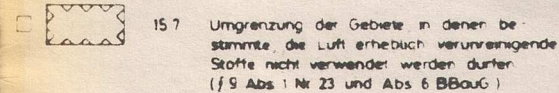 15 7 Umgrenzung der Gebiete in denen be-
stimmte, die Luft erheblich verunreinigende
Stoffe nicht verwendet werden dürfen
(§ 9 Abs 1 Nr 23 und Abs 6 BBauG)